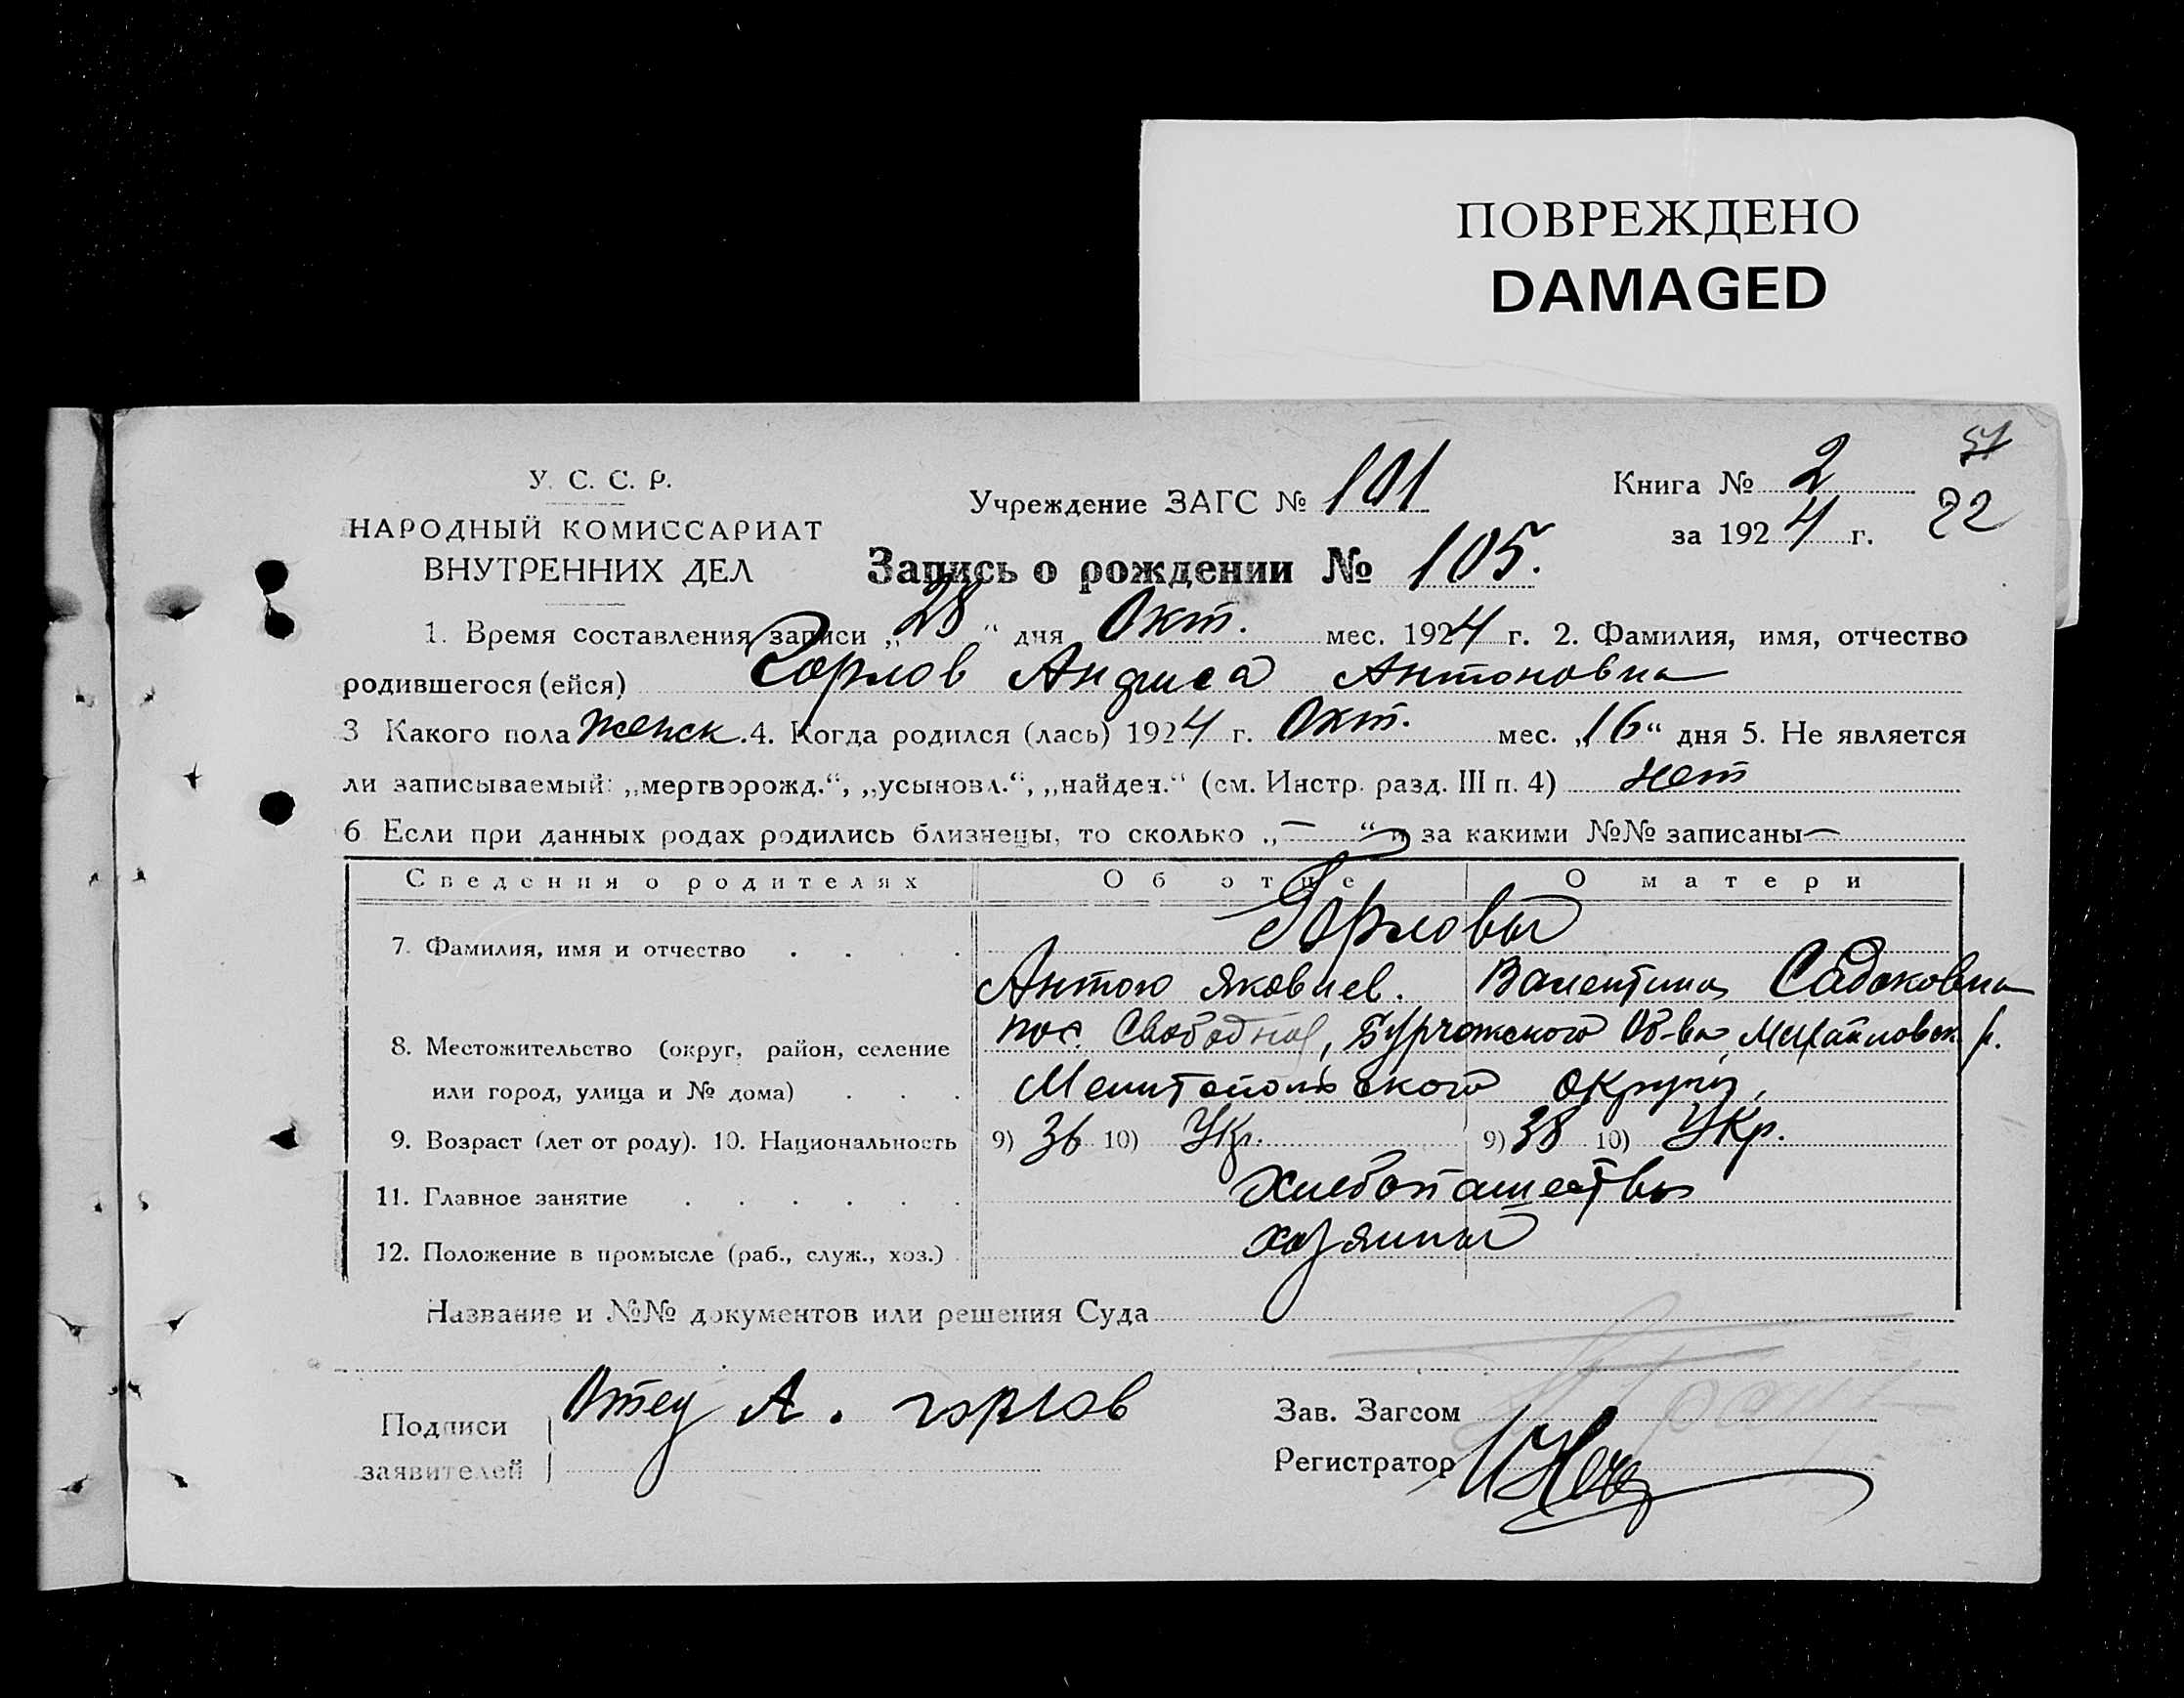 ПОВРЕЖДЕНО
DAMAGED
У. С. С. Р.
НАРОДНЫЙ КОМИССАРИАТ
ВНУТРЕННИХ ДЕЛ
Учреждение ЗАГС № 101
Книга № 2
за 1924 г.
22
Запись о рождении № 105.
1. Время составления записи „28“ дня Окт. мес. 1924 г. 2. Фамилия, имя, отчество
родившегося (ейся) Горлов Антоновна
3 Какого пола женск. 4. Когда родился (лась) 1924 г. Окт. мес. „16“ дня 5. Не является
ли записываемый: „мертворожд.“, „усыновл.“, „найден.“ (см. Инстр. разд. III п. 4) нет
6 Если при данных родах родились близнецы, то сколько „—“ за какими №№ записаны —
Сведения о родителях Об отце О матери
7. Фамилия, имя и отчество Горловы
Антон Яковлев. Валентина Садоковна
8. Местожительство (округ, район, селение пос. Свободной, Об-ва, Михайловск. р.
или город, улица и № дома) Мелитопольского округу,
9. Возраст (лет от роду). 10. Национальность 9) 36 10) Укр. 9) 38 10) Укр.
11. Главное занятие хлебопашество
12. Положение в промысле (раб., служ., хоз.) хозяины
Название и №№ документов или решения Суда
Подписи Отец А. горлов
заявителей
Зав. Загсом
Регистратор